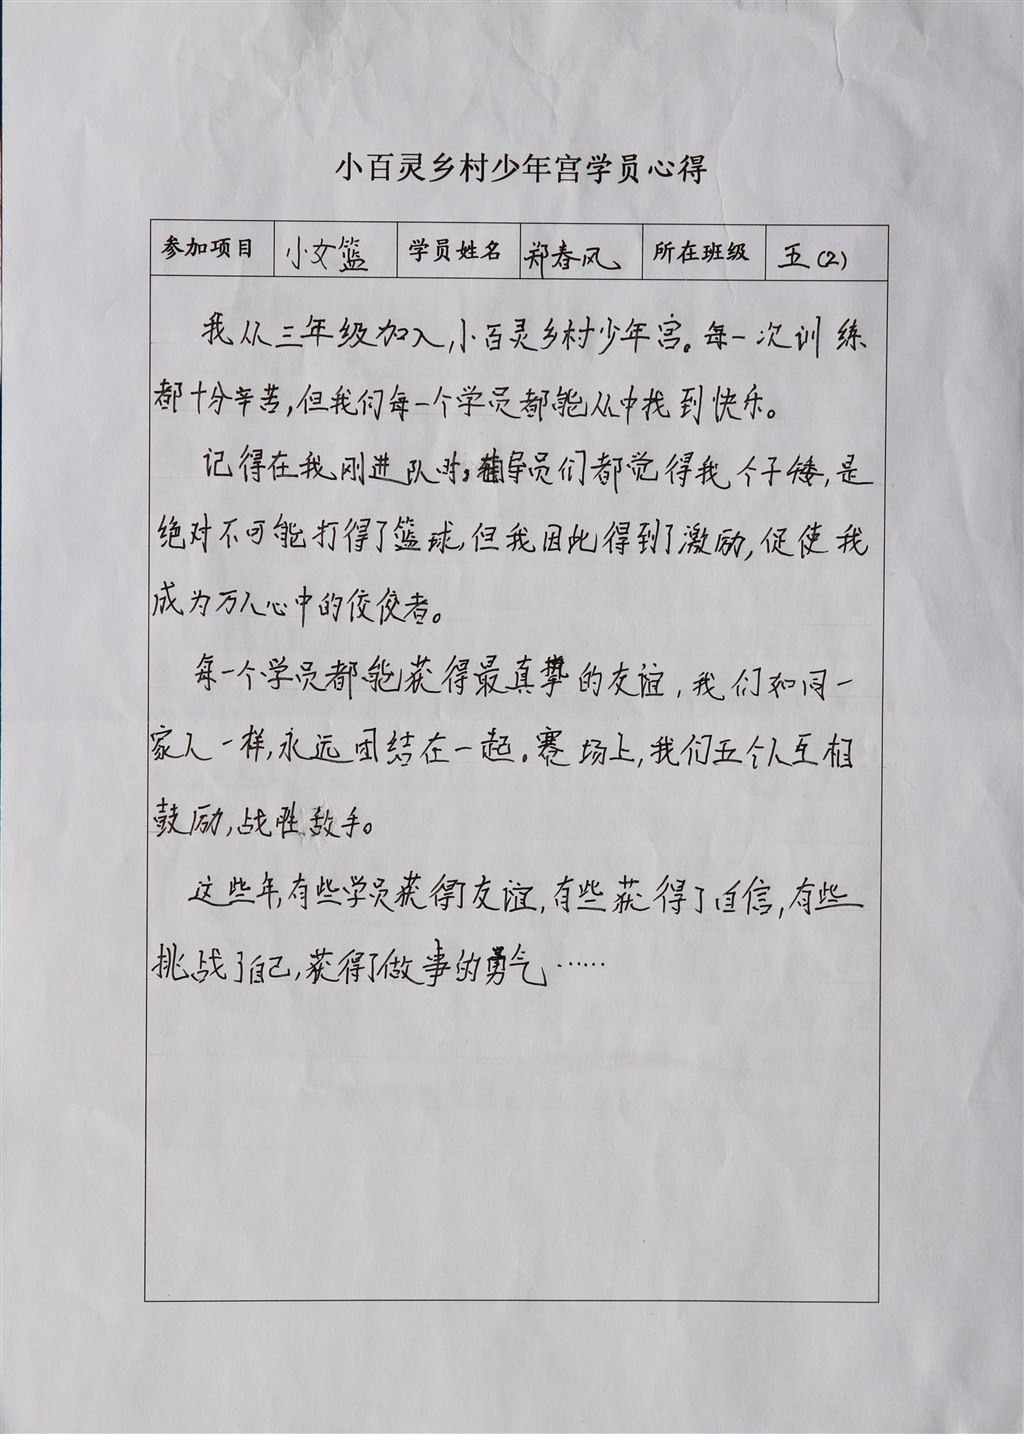 小百灵乡村少年宫学员心得
参加项目 小女篮 学员姓名 郑春风 所在班级 五(2)
我从三年级加入,小百灵乡村少年宫。每一次训练
都十分辛苦,但我们每一个学员都能从中找到快乐。
记得在我刚进队时,辅导员们都觉得我个子矮,是
绝对不可能打得了篮球,但我因此得到了激励,促使我
成为万人心中的佼佼者。
每一个学员都能获得最真挚的友谊,我们如同一
家人一样,永远团结在一起。赛场上,我们五个人互相
鼓励,战胜敌手。
这些年,有些学员获得了友谊,有些获得了自信,有些
挑战了自己,获得了做事的勇气……